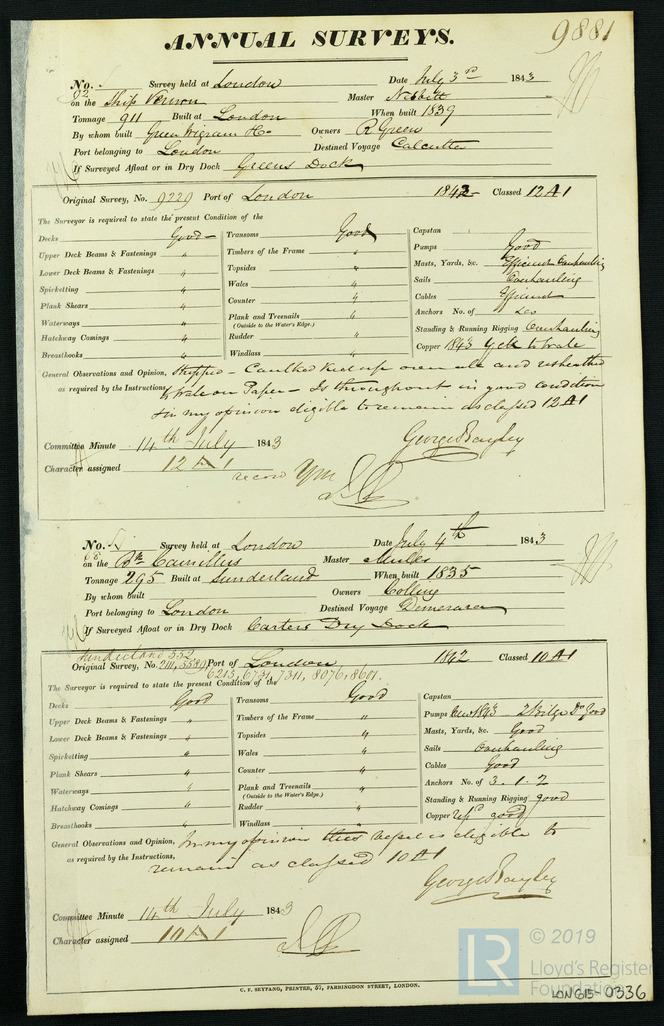 ANNUAL SURVEYS. 9881
No. Survey held at London Date July 3rd 1843
on the Ship Vernon Master Nesbitt
Tonnage 911 Built at London When built 1839
By whom built Green Wigram & Co Owners R Green
Port belonging to London Destined Voyage Calcutta
If Surveyed Afloat or in Dry Dock Greens Dock
Original Survey, No. 9229 Port of London 1842 Classed 12 A 1
The Surveyor is required to state the present Condition of the
Decks Good
Upper Deck Beams & Fastenings "
Lower Deck Beams & Fastenings "
Spirketting "
Plank Shears "
Waterways "
Hatchway Comings "
Breasthooks "
Transoms Good
Timbers of the Frame "
Topsides "
Wales "
Counter "
Plank and Treenails "
(Outside to the Water's Edge.)
Rudder "
Windlass "
Capstan
Pumps Good
Masts, Yards, &c. Efficient Overhauling
Sails Overhauling
Cables Efficient
Anchors No. of
Standing & Running Rigging Overhauling
Copper 1843 to Wale
General Observations and Opinion, Stripped - Caulked and
as required by the Instructions to Wale on Paper - Is throughout in good condition
& in my opinion eligible to remain as classed 12 A 1
George Bayley
Committee Minute 14th July 1843
Character assigned 12 A 1
record YM
No. Survey held at London Date July 4th 1843
on the Bk Camillus Master
Tonnage 295 Built at Sunderland When built 1835
By whom built Owners Colling
Port belonging to London Destined Voyage Demerara
If Surveyed Afloat or in Dry Dock Carters Dry Dock
Sunderland 552
Original Survey, No. 2111, 5589 Port of London 1842 Classed 10 A 1
6213, 6731, 7311, 8076, 8601.
The Surveyor is required to state the present Condition of the
Decks Good
Upper Deck Beams & Fastenings "
Lower Deck Beams & Fastenings "
Spirketting "
Plank Shears "
Waterways "
Hatchway Comings "
Breasthooks "
Transoms Good
Timbers of the Frame "
Topsides "
Wales "
Counter "
Plank and Treenails "
(Outside to the Water's Edge.)
Rudder "
Windlass "
Capstan
Pumps New 1843 2 Bilge Do Good
Masts, Yards, &c. Good
Sails Overhauling
Cables Good
Anchors No. of 3.1.2
Standing & Running Rigging good
Copper repd good
General Observations and Opinion, In my opinion this vessel is eligible to
as required by the Instructions, remain as classed 10 A 1
George Bayley
Committee Minute 14th July 1843
Character assigned 10 A 1
C. F. SEYFANG, PRINTER, 57, FARRINGDON STREET, LONDON.
LR © 2019
Lloyd's Register
Foundation
LON 615-0336